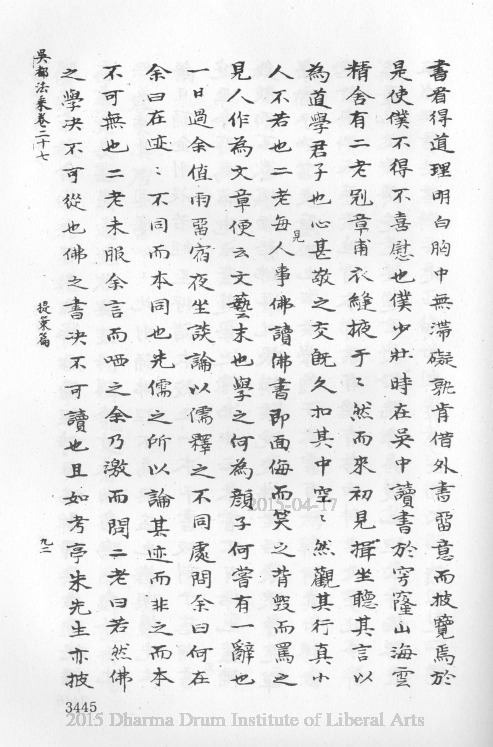 書看得道理明白胸中無滯礙孰肯借外書畱意而披覽焉於
是使僕不得不喜慰也僕少壯時在吳中讀書於穹窿山海雲
精舍有二老冠章甫衣縫掖于〻然而來初見揖坐聽其言以
為道學君子也心甚敬之交旣久扣其中空〻然觀其行真小
人不若也二老每見人事佛讀佛書即面侮而笑之背毀而罵之
見人作為文章便云文藝末也學之何為顏子何嘗有一辭也
一日過余值雨畱宿夜坐談論以儒釋之不同處問余曰何在
余曰在迹〻不同而本同也先儒之所以論其迹而非之而本
不可無也二老未服余言而哂之余乃激而問二老曰若然佛
之學决不可從也佛之書决不可讀也且如考亭朱先生亦披
吳都法乘卷二十七
提策篇
九二
3445
2015-04-17
2015 Dharma Drum Institute of Liberal Arts